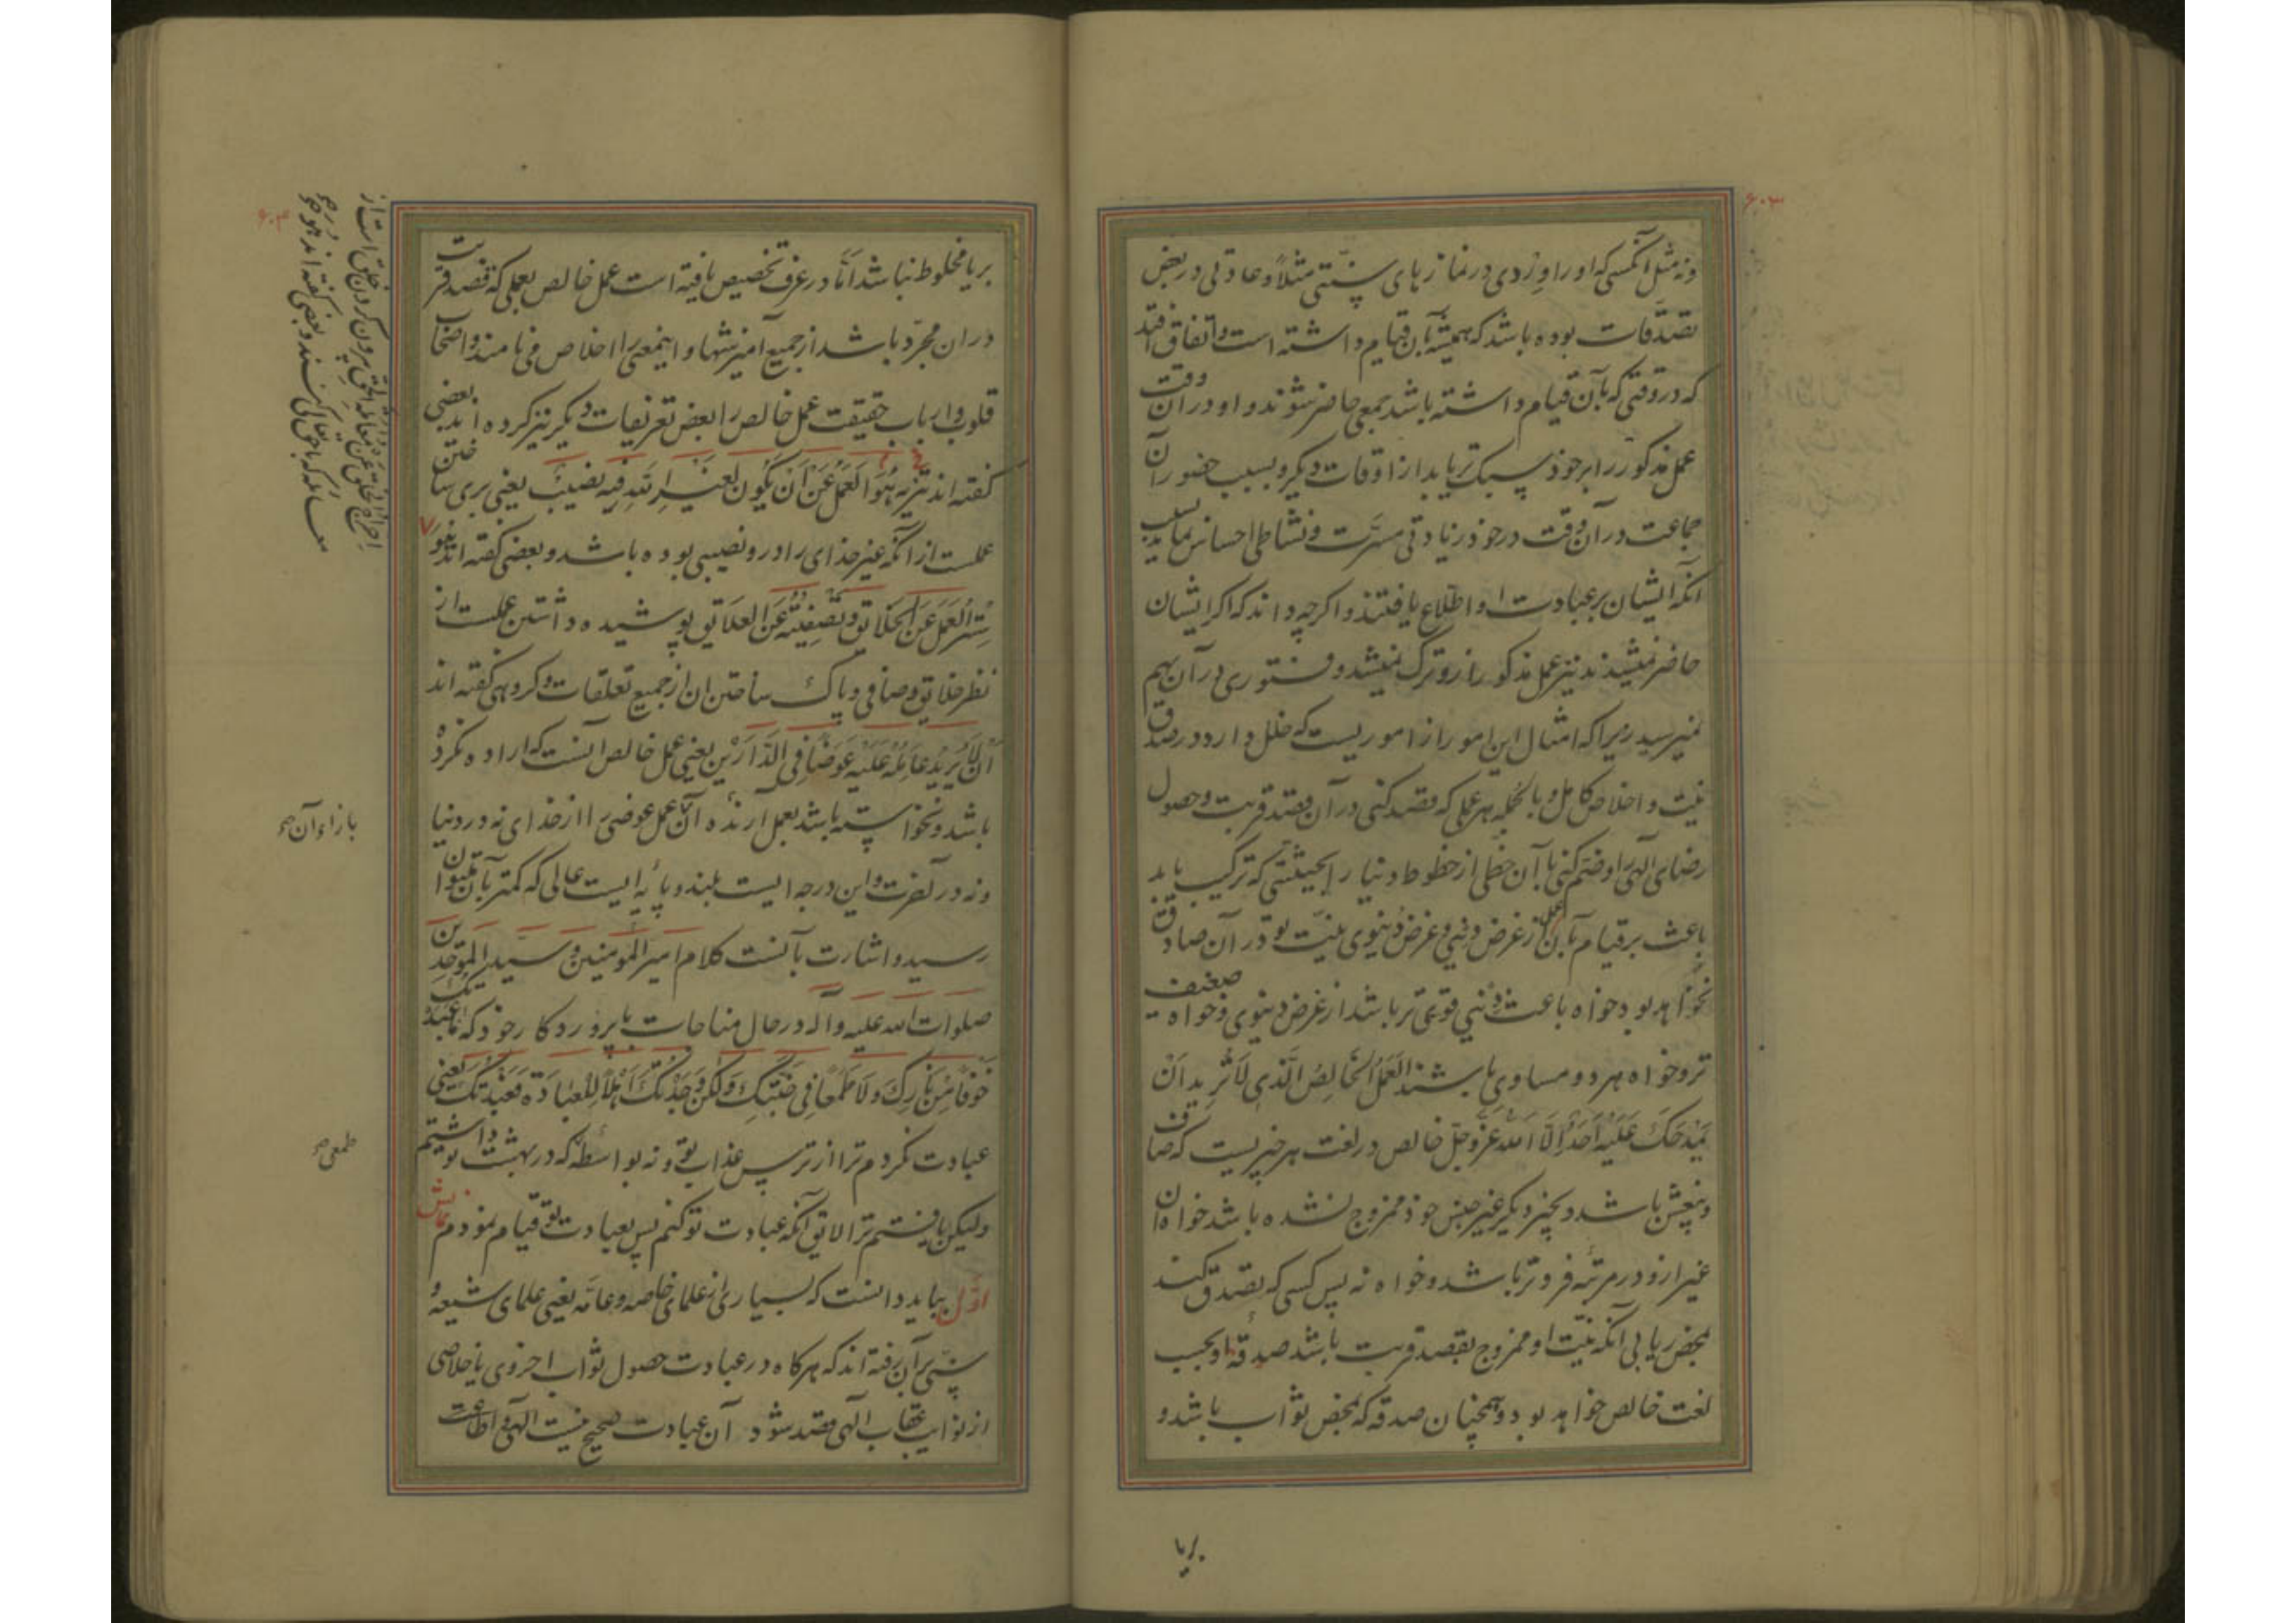 ۶۰۳
ونه مثل آنکسی که او را وِردی در نمازهای سنّتی مثلاً و عادتی در بعض
تصدّقات بوده باشد که همیشه بآن قیام داشته است و اتفاق افتد
که در وقتی که بآن قیام داشته باشد جمعی حاضر شوند و او در آن وقت
عمل مذکور را بر خود سبک تر یابد از اوقات دیگر و بسبب حضور آن
جماعت در آن وقت در خود زیادتی مسرّت و نشاطی احساس نماید بسبب
آنکه ایشان بر عبادت او اطلاع یافتند و اگر چه داند که اگر ایشان
حاضر نمیشدند نیز عمل مذکور ازو ترک نمیشد و فتوری در آن بهم
نمیرسید زیرا که امثال این امور از اموریست که خلل دارد در صدق
نیت و اخلاص کامل و بالجمله هر عملی که قصد کنی در آن قصد قربت و حصول
رضای الهی را و ضم کنی با آن حظی از حظوظ دنیا را بحیثیتی که ترکیب یابد
باعث بر قیام بآن عمل از غرض دینی و غرض دنیوی نیّت تو در آن صادق
نخواهد بود خواه باعث دینی قوی تر باشد از غرض دنیوی و خواه ضعیف
تر و خواه هر دو مساوی باشند العَمَلُ الخَالِصُ الَّذِی لَا تُرِیدُ اَنْ
یَمْدَحَکَ عَلَیْهِ اَحَدٌ اِلَّا اللّٰهَ عَزَّ وَجَلَّ خالص در لغت هر چیزیست که صاف
وبیغش باشد و بچیز دیگر غیر جنس خود ممزوج نشده باشد خواه آن
غیر ازو در مرتبه فروتر باشد و خواه نه پس کسی که تصدق کند
بمحض ریا بی آنکه نیّت او ممزوج بقصد قربت باشد صدقهٔ او بحسب
لغت خالص خواهد بود و همچنان صدقه که بمحض ثواب باشد و
بریا
۶۰۴
بریا مخلوط نباشد امّا در عرف تخصیص یافته است عمل خالص بعملی که قصد قربت
در ان مجرّد باشد از جمیع آمیزشها و اینمعنی را اخلاص می نامند و اصحاب
قلوب و ارباب حقیقت عمل خالص را بعض تعریفات دیگر نیز کرده اند بعضی
گفته اند هُوَ تَنْزِیهُ العَمَلِ عَنْ اَنْ یَکُونَ لِغَیْرِ اللّٰهِ فِیهِ نَصِیبٌ یعنی بری ساختن
عملست از آنکه غیر خدای را درو نصیبی بوده باشد و بعضی گفته اند هُوَ
سَتْرُ العَمَلِ عَنِ الخَلَائِقِ وَتَصْفِیَتُهُ عَنِ العَلَائِقِ پوشیده داشتن عملست از
نظر خلایق و صافی و پاک ساختن ان از جمیع تعلقات و گروهی گفته اند
اَنْ لَا یُرِیدَ عَامِلُهُ عَلَیْهِ عِوَضًا فِی الدَّارَیْنِ یعنی عمل خالص آنست که اراده نکرده
باشد و نخواسته باشد بعمل آرنده آن عمل عوضی را از خدای نه در دنیا
ونه در آخرت و این درجه ایست بلند و پایه ایست عالی که کمتر بآن میتوان
رسید و اشارت بآنست کلام امیر المومنین و سید الموحدین
صلوات الله علیه و آله در حال مناجات با پروردگار خود که مَا عَبَدْتُکَ
خَوْفًا مِنْ نَارِکَ وَلَا طَمَعًا فِی جَنَّتِکَ وَلٰکِنْ وَجَدْتُکَ اَهْلًا لِلْعِبَادَةِ فَعَبَدْتُکَ یعنی
عبادت نکردم ترا از ترس عذاب تو و نه بواسطه که در بهشت تو داشتم
ولیکن یافتم ترا لایق آنکه عبادت تو کنم پس بعبادت تو قیام نمودم نمایش
اوّل بباید دانست که بسیاری از علمای خاصه و عامّه یعنی علمای شیعه و
سنّی بر آن رفته اند که هرگاه در عبادت حصول ثواب اخروی یا خلاصی
از عقاب الهی قصد شود آن عبادت صحیح نیست الهی و اطاعت
اخراج الخلق عن معاملة الحق بیرون کردن خلق است از
معامله که با حق تعالی کنند و بعضی گفته اند هو
بازاء آن
طمعی